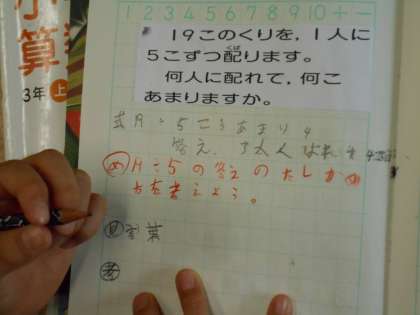 小
算数
3年 上
1 2 3 4 5 6 7 8 9 10 + −
19このくりを,1人に
5こずつ配ります。
何人に配れて,何こ
あまりますか。
式 19÷5=3あまり4
答え
め 19÷5の答えのたしか
方を考えよう。
言葉
考